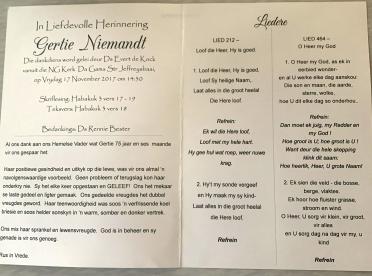 In Liefdevolle Herinnering
Gertie Niemandt
Die dankdiens word gelei deur Ds Evert de Kock
vanuit die NG Kerk Da Gama Str Jeffreysbaai,
op Vrydag 17 November 2017 om 14:30
Skriflesing: Habakuk 3 vers 17 - 19
Teksvers: Habakuk 3 vers 18
Bedankings: Ds Rennie Bester
Al ons dank aan ons Hemelse Vader wat Gertie 75 jaar en ses maande
vir ons gespaar het.
Haar positiewe gesindheid en uitkyk op die lewe, was vir ons almal 'n
navolgenswaardige voorbeeld. Geen probleem of terugslag kon haar
onderkry nie. Sy het elke keer opgestaan en GELEEF! Ons het mekaar
se laste gedeel en ligter gemaak. Ons gedeelde vreugdes het dubbel
vreugdes geword. Haar teenwoordigheid was soos 'n verfrissende koel
briesie en soos helder sonskyn in 'n warm, somber en donker vertrek.
Ons mis haar sprankel en lewensvreugde. God is in beheer en sy
genade is vir ons genoeg.
Rus in Vrede.
Liedere
LIED 212 –
Loof die Heer, Hy is goed.
1. Loof die Heer, Hy is goed.
Loof Sy heilige Naam,
Laat alles in die groot heelal
Die Here loof.
Refrein:
Ek wil die Here loof,
Loof met my hele hart.
Hy gee hul wat roep, weer nuwe
krag.
2. Hy't my sonde vergeef
En Hy maak my sy kind-
Laat alles in die groot heelal
die Here loof.
Refrein
LIED 464 –
O Heer my God
1. O Heer my God, as ek in
eerbied wonder-
en al U werke elke dag aanskou:
Die son en maan, die aarde,
sterre, wolke,
hoe U dit elke dag so onderhou..
Refrein:
Dan moet ek juig, my Redder en
my God !
Hoe groot is U; hoe groot is U !
Want deur die hele skepping
klink dit saam:
Hoe heerlik, Heer, U grote Naam!
2. Ek sien die veld - die bosse,
berge, vlaktes.
Ek hoor hoe fluister grasse,
stroom en wind.
O Heer, U sorg vir klein, vir groot,
vir alles
en U sorg dag na dag vir my, u
kind
Refrein